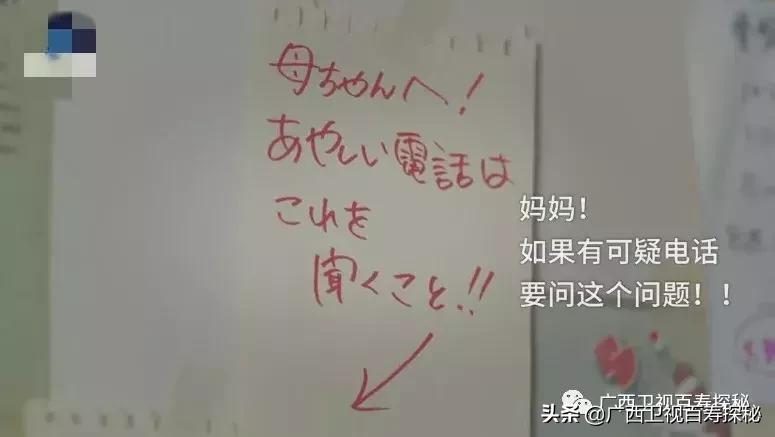 母ちゃんへ!
あやしい電話は
これを
聞くこと!!
妈妈！
如果有可疑电话
要问这个问题！！
广西卫视百寿探秘
头条 @广西卫视百寿探秘